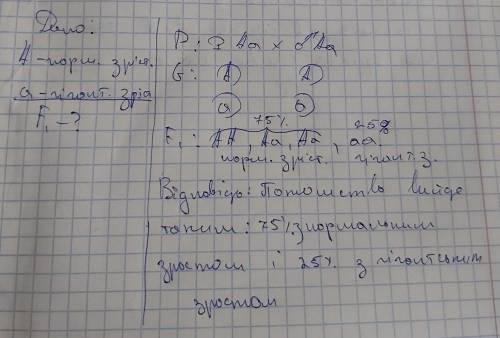 Дано:
A - норм. зріст.
a - гігант. зріст
F₁ - ?
P: ♀ Aa x ♂ Aa
G: A A
a a
75% 25%
F₁: AA, Aa, Aa, aa.
норм. зріст. гігант. з.
Відповідь: Потомство вийде
таким: 75% з нормальним
зростом і 25% з гігантським
зростом